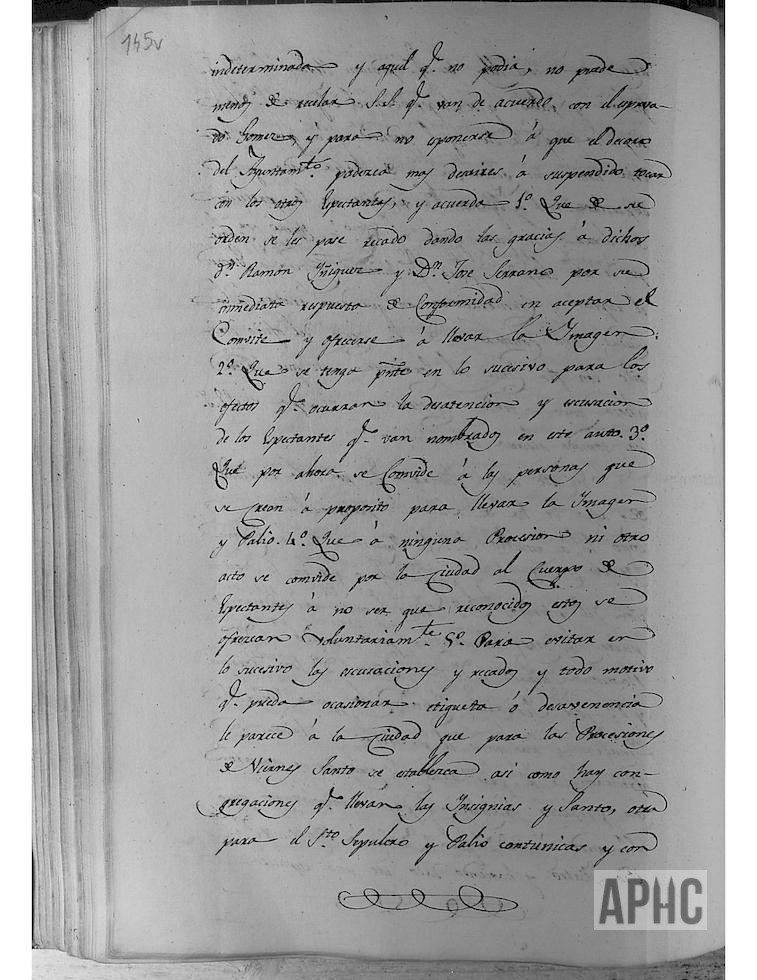 145v
indeterminada y aquel q.e no podia, no puede
menos de recelar S.S. q.e van de acuerdo con el expresa-
do Gomez, y para no exponerse á que el decoro
del Ayuntam.to padezca mas desaires á suspendido tocar
con los otros Espectantes, y acuerda 1.º Que de su
orden se les pase recado dando las gracias á dichos
d.n Ramon Yñiguez y D.n Jose Serrano por su
inmediata respuesta de Conformidad en aceptar el
Convite y ofrecerse á llevar la Ymagen.
2.º Que se tenga pnte en lo sucesivo para los
efectos q.e ocurran la desatencion y escusacion
de los Espectantes q.e van nombrados en este auto. 3.º
Que por ahora se Convide á las personas que
se crean á proposito para llevar la Ymagen
y Palio. 4.º Que á ninguna Procesion ni otro
acto se convide por la Ciudad al Cuerpo de
Espectantes á no ser que reconocidos estos se
ofrezcan Voluntariam.te 5.º Para evitar en
lo sucesivo las escusaciones y recados y todo motivo
q.e pueda ocasionar etiqueta ó desavenencia
le parece á la Ciudad que para las Procesiones
de Viernes Santo se establezca asi como hay con-
gregaciones q.e llevan las Ynsignias y Santos, otra
para el S.to Sepulcro y Palio con tunicas y con
APHC